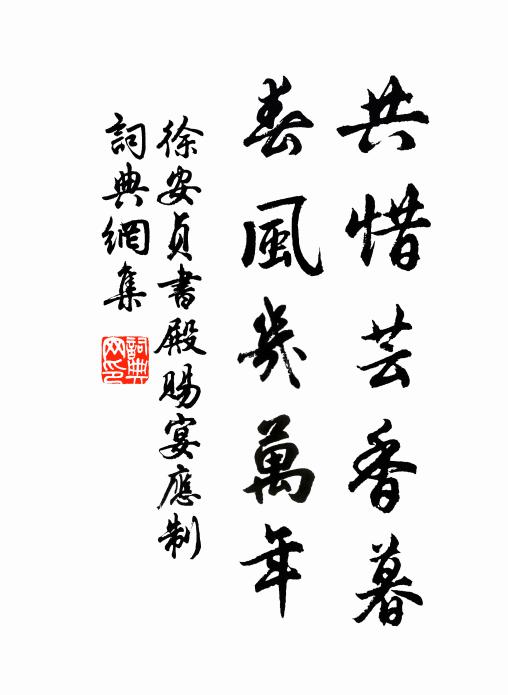 共惜芸香暮
春風幾萬年
徐安貞書殿賜宴應制
詞典網集
詞典
网印